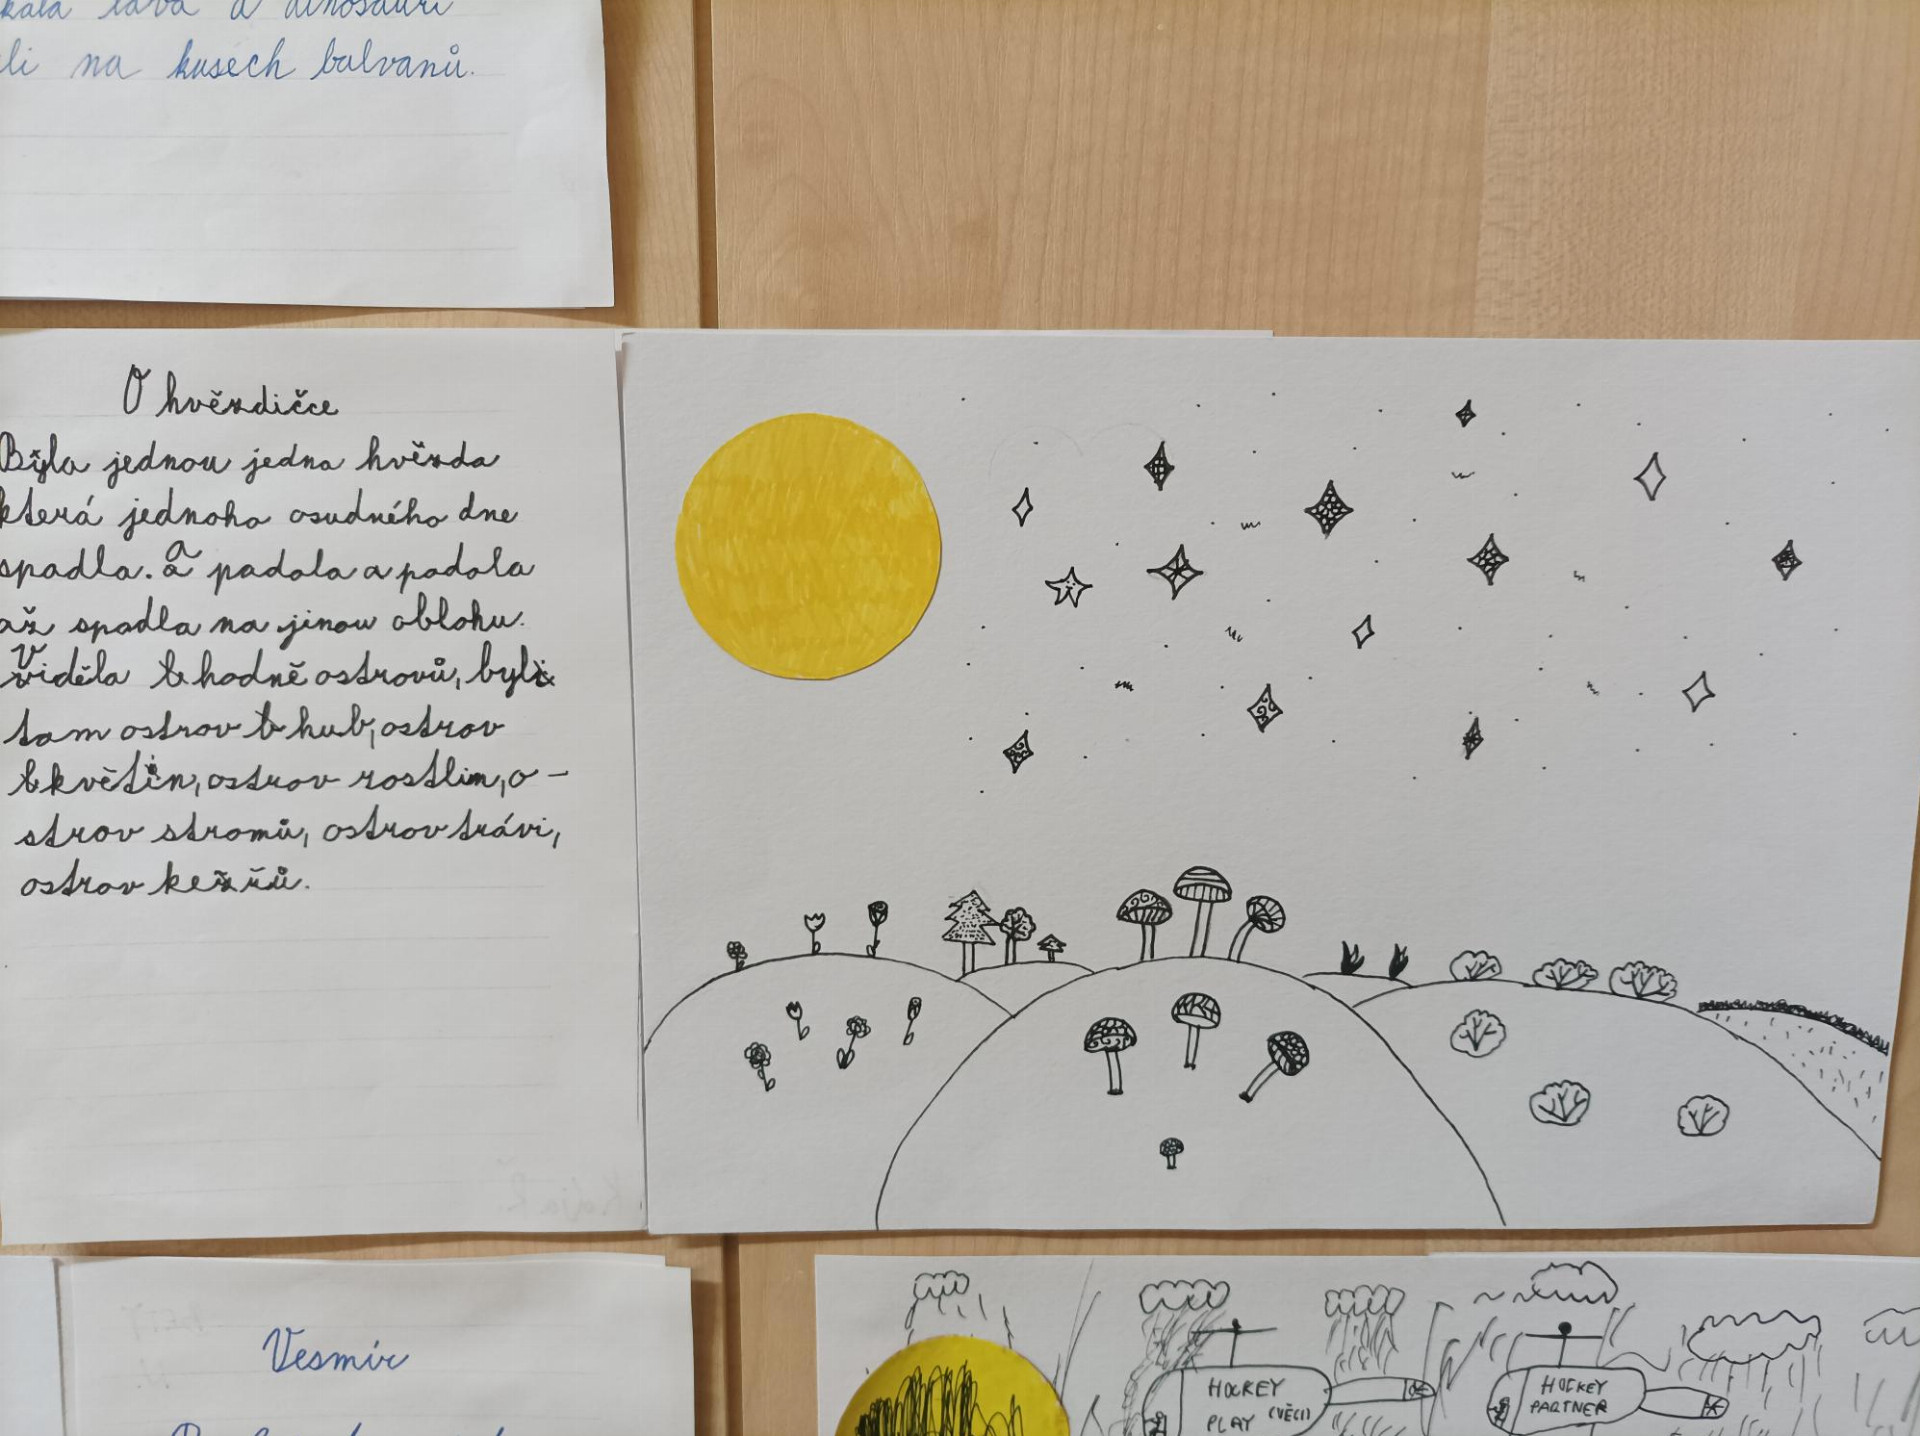 lava a dinosauři
na kusech balvanů.
O hvězdičce
Byla jednou jedna hvězda
která jednoho osudného dne
spadla. a padala a padala
až spadla na jinou oblohu.
Viděla hodně ostrovů, byl
tam ostrov hub, ostrov
květin, ostrov rostlin, o-
strov stromů, ostrov trávi,
ostrov keřůů.
Vesmír
HOCKEY
PLAY (VĚCI)
HOCKEY
PARTNER